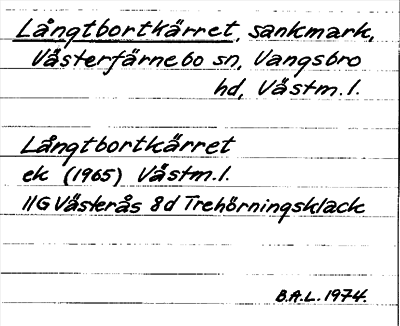 Långtbortkärret, sankmark,
Västerfärnebo sn, Vangsbro
hd, Västm. l.
Långtbortkärret
ek (1965) Västm. l.
11G Västerås 8d Trehörningsklack
B.A.L. 1974.